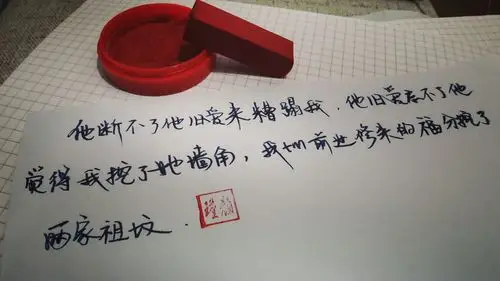 他断不了他旧爱来糟蹋我，他旧爱忘不了他
觉得我挖了她墙角，我tm前世修来的福分挖了
两家祖坟.